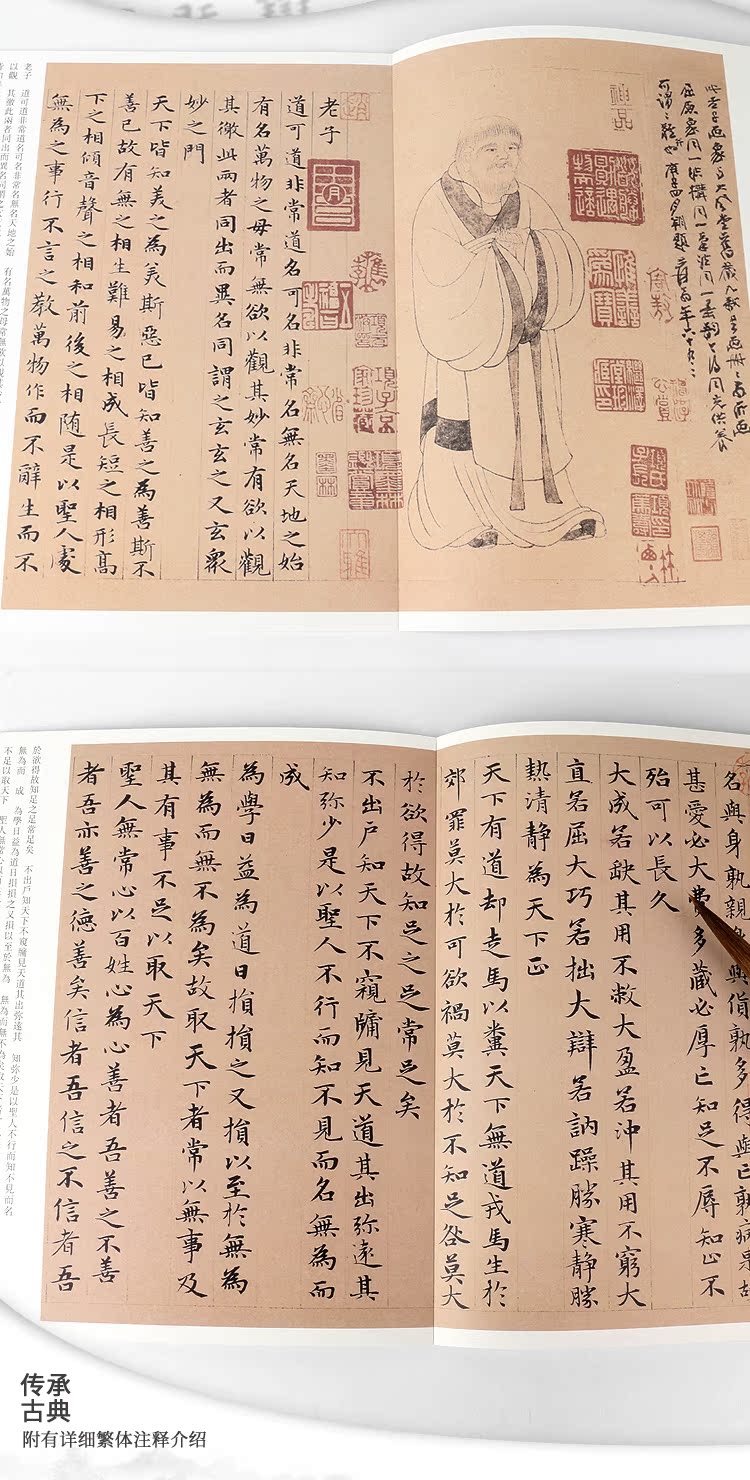 老子
道可道非常道名可名非常名無名天地之始
有名萬物之母常無欲以觀其妙常有欲以觀
其徼此兩者同出而異名同謂之玄玄之又玄眾
妙之門
天下皆知美之為美斯惡已皆知善之為善斯不
善已故有無之相生難易之相成長短之相形高
下之相傾音聲之相和前後之相随是以聖人處
無為之事行不言之教萬物作而不辭生而不
名與身孰親身與貨孰多得與亡孰病是故
甚愛必大費多藏必厚亡知足不辱知止不
殆可以長久
大成若缺其用不敝大盈若沖其用不窮大
直若屈大巧若拙大辯若訥躁勝寒静勝
熱清静為天下正
天下有道却走馬以糞天下無道戎馬生於
郊罪莫大於可欲禍莫大於不知足咎莫大
於欲得故知足之足常足矣
不出户知天下不窺牖見天道其出弥遠其
知弥少是以聖人不行而知不見而名無為而
成
為學日益為道日損損之又損以至於無為
無為而無不為矣故取天下者常以無事及
其有事不足以取天下
聖人無常心以百姓心為心善者吾善之不善
者吾亦善之德善矣信者吾信之不信者吾
於欲得故知足之足常足矣 不出戶知天下不窺牖見天道其出弥遠其 知弥少是以聖人不行而知不見而名
無為而 成 為學日益為道日損損之又損以至於無為 無為而無不為矣故取天下
传承
古典
附有详细繁体注释介绍